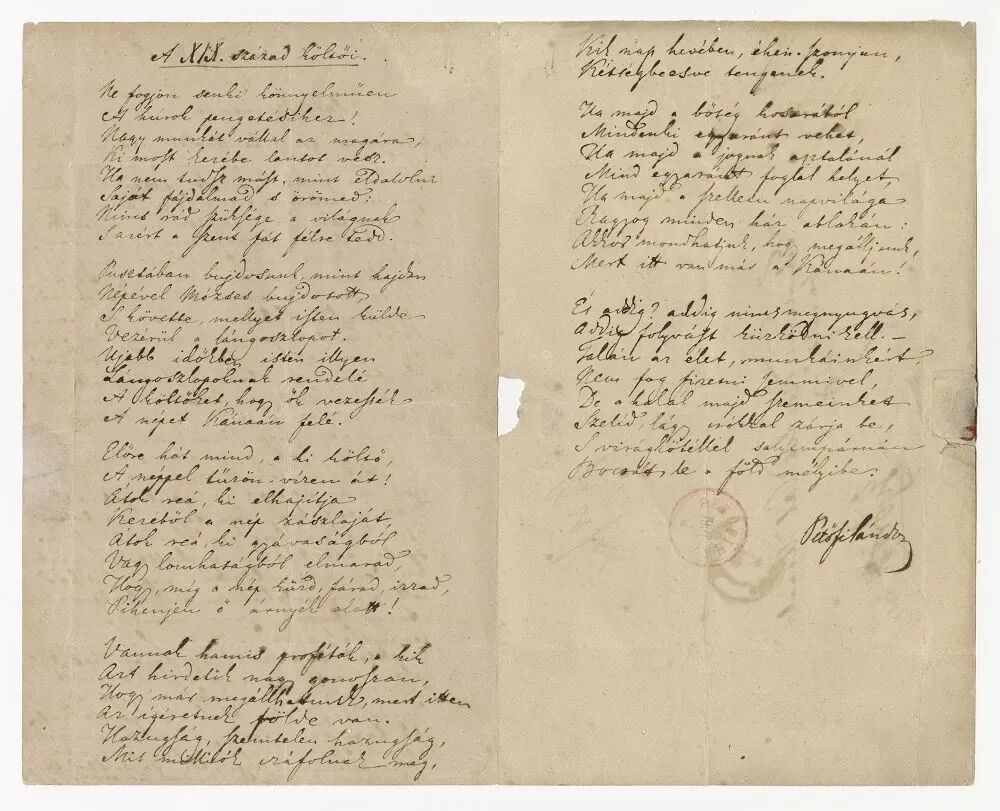 A XIX. század költői.
Ne fogjon senki könnyelműen
A húrok pengetésihez!
Nagy munkát vállal az magára,
Ki most kezébe lantot vesz.
Ha nem tudsz mást, mint eldalolni
Saját fájdalmad s örömed:
Nincs rád szüksége a világnak
S azért a szent fát félre tedd.
Pusztában bujdosunk, mint hajdan
Népével Mózses bujdosott,
S követte, mellyet isten külde
Vezérül a lángoszlopot.
Ujabb időkben isten illyen
Lángoszlopoknak rendelé
A költőket, hogy ők vezessék
A népet Kánaán felé.
Előre hát mind, a ki költő,
A néppel tűzön-vizen át!
Átok reá, ki elhajítja
Kezéből a nép zászlaját,
Átok reá, ki gyávaságból
Vagy lomhaságból elmarad,
Hogy, míg a nép küzd, fárad, izzad,
Pihenjen ő árnyék alatt!
Vannak hamis próféták, a kik
Azt hirdetik nagy gonoszan,
Hogy már megállhatunk, mert itten
Az igéretnek földe van.
Hazugság, szemtelen hazugság,
Mit milliók cáfolnak meg,
Kik nap hevében, éhen-szomjan,
Kétségbeesve tengenek.
Ha majd a bőség kosarából
Mindenki egyaránt vehet,
Ha majd a jognak asztalánál
Mind egyaránt foglal helyet,
Ha majd a szellem napvilága
Ragyog minden ház ablakán:
Akkor mondhatjuk, hogy megálljunk,
Mert itt van már a Kánaán!
És addig? addig nincs megnyugvás,
Addig folyvást küszködni kell. —
Talán az élet, munkáinkért,
Nem fog fizetni semmivel,
De a halál majd szemeinket
Szelíd, lágy csókkal zárja be,
S virágkötéllel selyempárnán
Bocsát le a föld mélyibe.
Petőfi Sándor